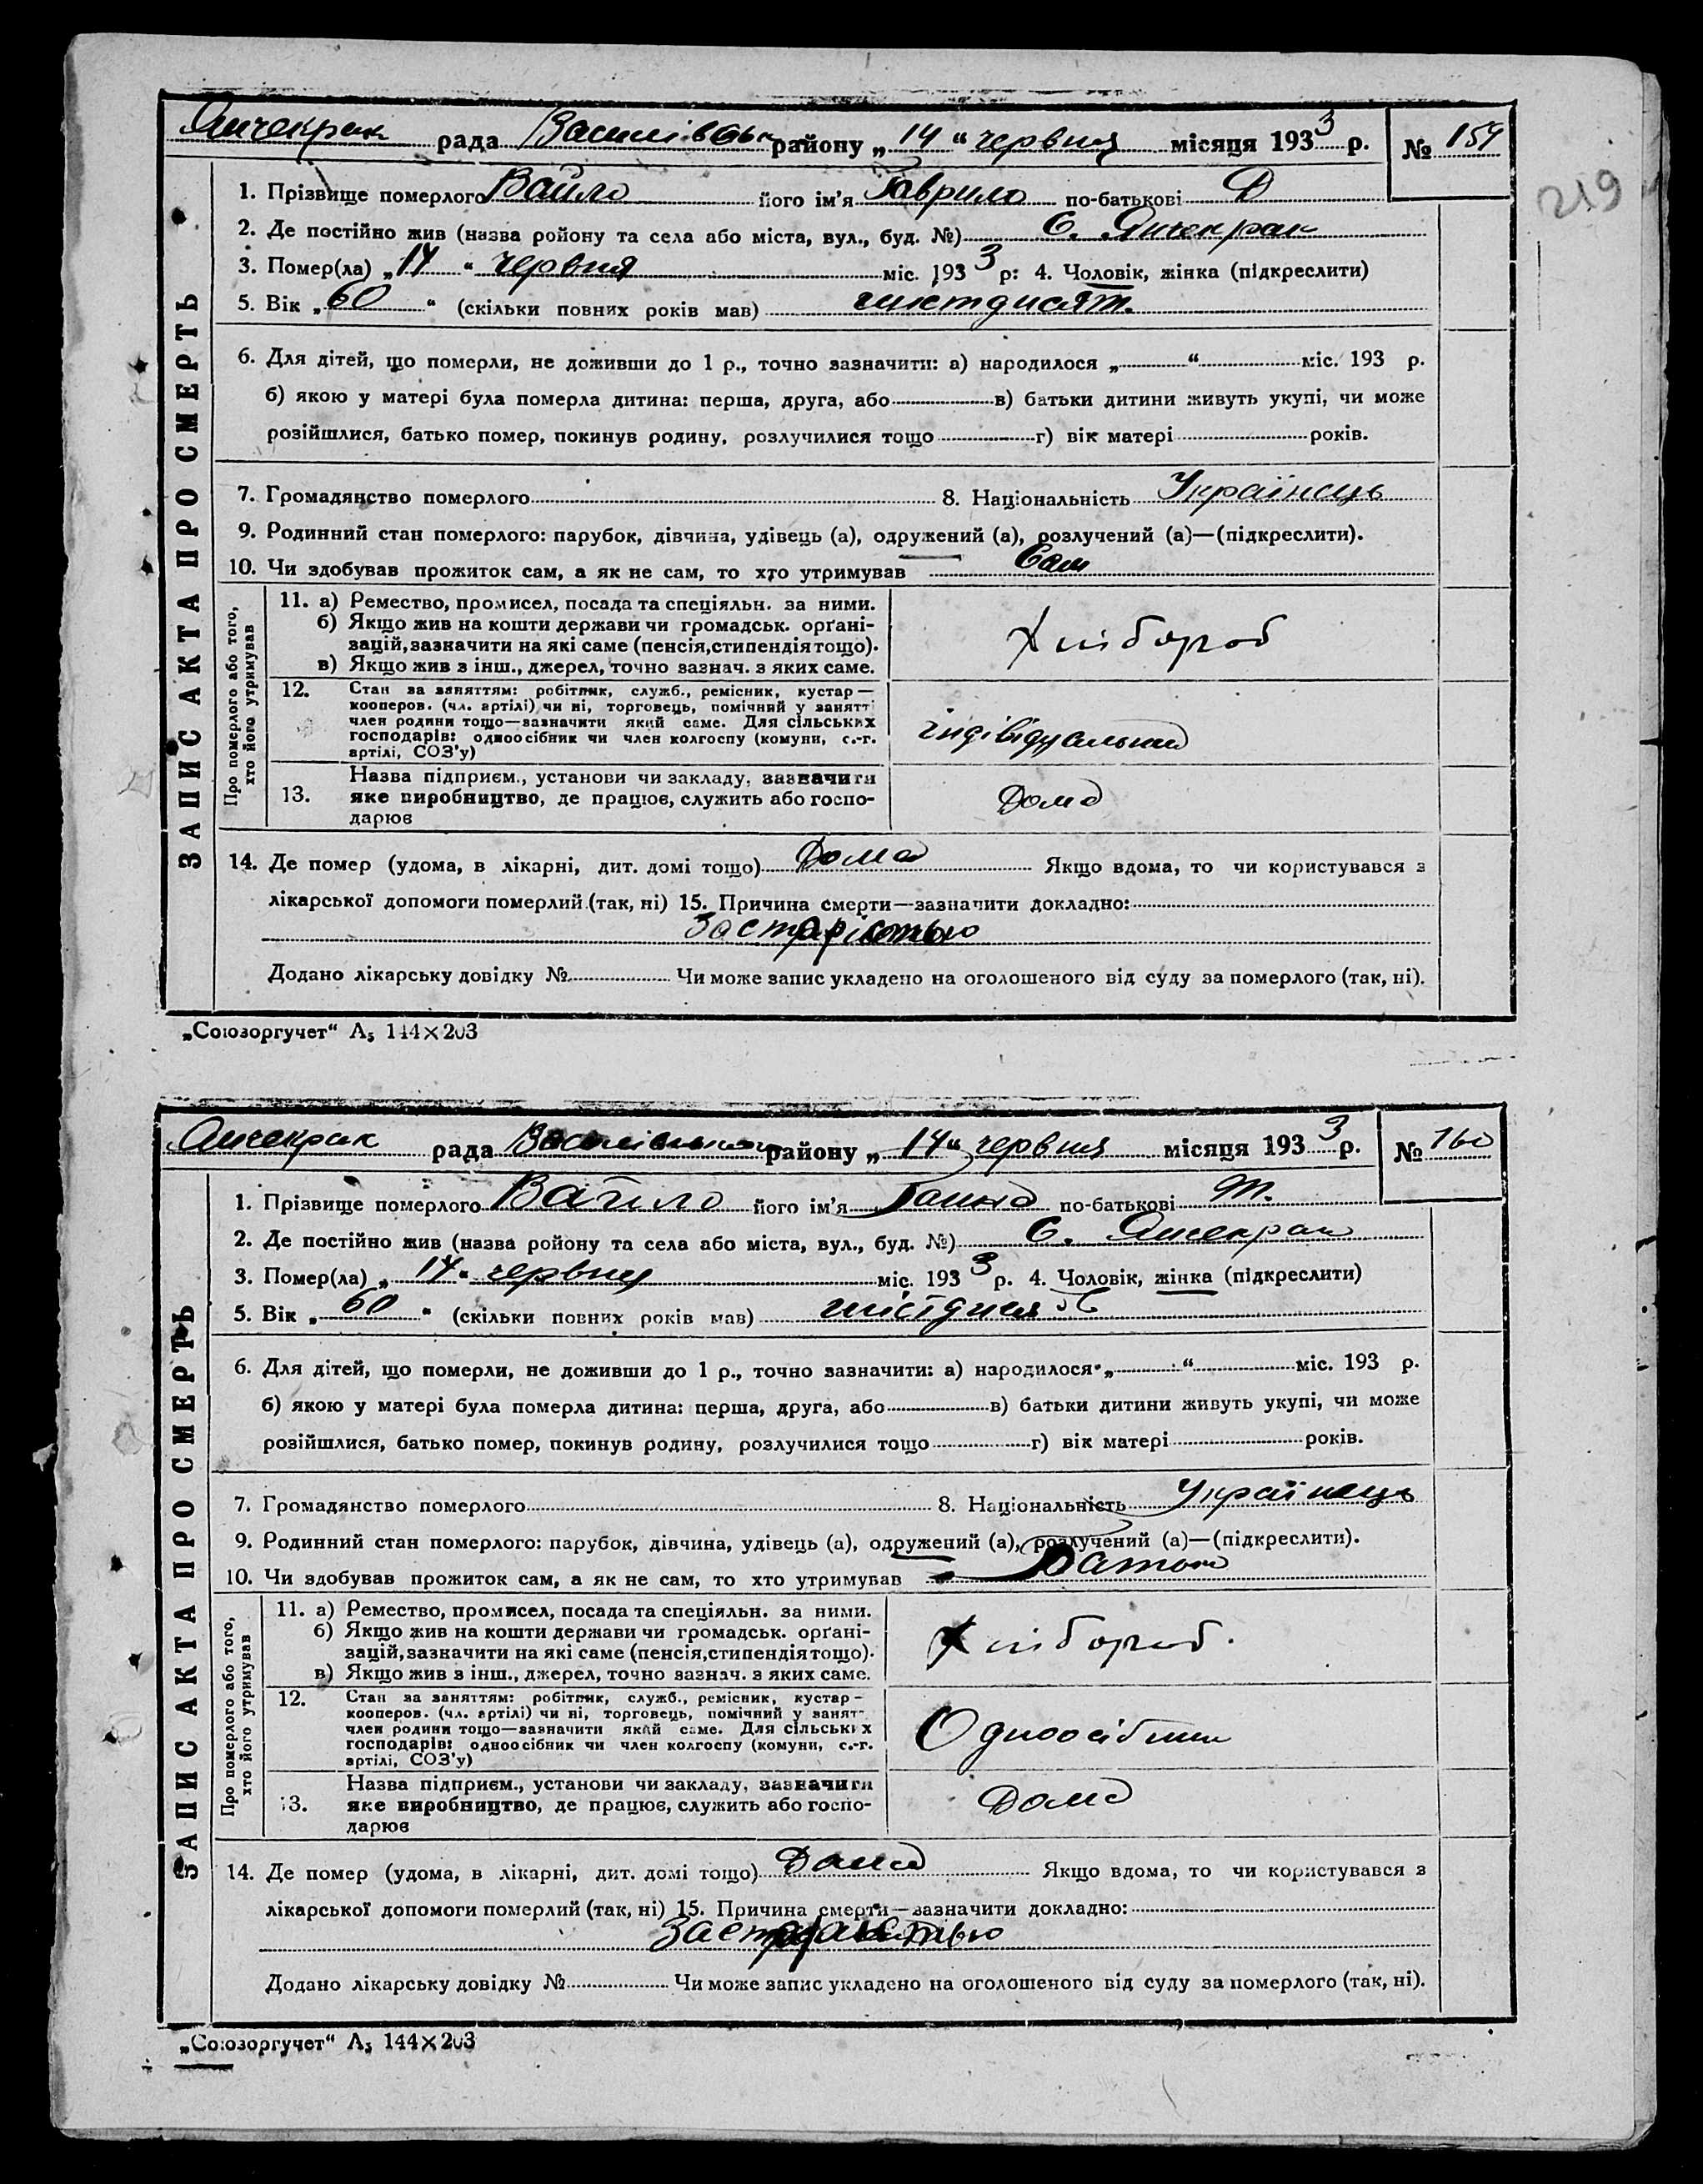 Янчекрак рада Василівськ району „14“ червня місяця 1933 р. № 159
219
1. Прізвище померлого Вайло його ім'я Гаврило по-батькові Д
2. Де постійно жив (назва ройону та села або міста, вул., буд. №) С. Янчекрак
3. Помер(ла) „14“ червня міс. 1933 р: 4. Чоловік, жінка (підкреслити)
5. Вік „60“ (скільки повних років мав) шістдисят.
6. Для дітей, що померли, не доживши до 1 р., точно зазначити: а) народилося „ “ міс. 193 р.
б) якою у матері була померла дитина: перша, друга, або в) батьки дитини живуть укупі, чи може
розійшлися, батько помер, покинув родину, розлучилися тощо г) вік матері років.
7. Громадянство померлого 8. Національність Українець
9. Родинний стан померлого: парубок, дівчина, удівець (а), одружений (а), розлучений (а)—(підкреслити).
10. Чи здобував прожиток сам, а як не сам, то хто утримував Сам
ЗАПИС АКТА ПРО СМЕРТЬ
Про померлого або того,
хто його утримував
11. а) Ремество, промисел, посада та спеціяльн. за ними.
б) Якщо жив на кошти держави чи громадськ. орґані-
зацій, зазначити на які саме (пенсія, стипендія тощо).
в) Якщо жив з інш., джерел, точно зазнач. з яких саме.
Хлібороб
12. Стан за заняттям: робітник, служб., ремісник, кустар—
кооперов. (чл. артілі) чи ні, торговець, помічний у занятті
член родини тощо—зазначити який саме. Для сільських
господарів: одноосібник чи член колгоспу (комуни, с.-г.
артілі, СОЗ'у)
індівідуальний
13. Назва підприєм., установи чи закладу, зазначити
яке виробництво, де працює, служить або госпо-
дарює
Дома
14. Де помер (удома, в лікарні, дит. домі тощо) Дома Якщо вдома, то чи користувався з
лікарської допомоги померлий (так, ні) 15. Причина смерти—зазначити докладно:
Застарістью
Додано лікарську довідку № Чи може запис укладено на оголошеного від суду за померлого (так, ні).
„Союзоргучет“ А₅ 144×203
Янчекрак рада району „14“ червня місяця 1933 р. № 160
1. Прізвище померлого Вайло його ім'я Ганна по-батькові Т.
2. Де постійно жив (назва ройону та села або міста, вул., буд. №) С. Янчекрак
3. Помер(ла) „14“ червня міс. 1933 р. 4. Чоловік, жінка (підкреслити)
5. Вік „60“ (скільки повних років мав) шістдисят
6. Для дітей, що померли, не доживши до 1 р., точно зазначити: а) народилося „ “ міс. 193 р.
б) якою у матері була померла дитина: перша, друга, або в) батьки дитини живуть укупі, чи може
розійшлися, батько помер, покинув родину, розлучилися тощо г) вік матері років.
7. Громадянство померлого 8. Національність Українець
9. Родинний стан померлого: парубок, дівчина, удівець (а), одружений (а), розлучений (а)—(підкреслити).
10. Чи здобував прожиток сам, а як не сам, то хто утримував
ЗАПИС АКТА ПРО СМЕРТЬ
Про померлого або того,
хто його утримував
11. а) Ремество, промисел, посада та спеціяльн. за ними.
б) Якщо жив на кошти держави чи громадськ. орґані-
зацій, зазначити на які саме (пенсія, стипендія тощо).
в) Якщо жив з інш., джерел, точно зазнач. з яких саме.
Хлібороб.
12. Стан за заняттям: робітник, служб., ремісник, кустар-
кооперов. (чл. артілі) чи ні, торговець, помічний у занят-
член родини тощо—зазначити який саме. Для сільських
господарів: одноосібник чи член колгоспу (комуни, с.-г.
артілі, СОЗ'у)
Одноосібник
13. Назва підприєм., установи чи закладу, зазначити
яке виробництво, де працює, служить або госпо-
дарює
Дома
14. Де помер (удома, в лікарні, дит. домі тощо) Дома Якщо вдома, то чи користувався з
лікарської допомоги померлий (так, ні) 15. Причина смерти—зазначити докладно:
Додано лікарську довідку № Чи може запис укладено на оголошеного від суду за померлого (так, ні).
„Союзоргучет“ А₅ 144×203